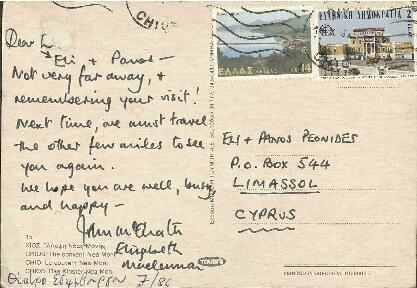 Dear
Eli + Panos –
Not very far away, &
remembering your visit!
Next time, we must travel
the other few miles to see
you again.
We hope you are well, busy
and happy –
John McGrath
Elizabeth
MacLennan
7/86
15
ΧΙΟΣ: Άποψη Νέας Μονής
CHIOS: The convent Nea Moni
CHIOS: Le couvent Nea Moni
CHIOS: Das Kloster Nea Moni
TOUBI'S
CHIOS
ΕΛΛΑΣ
14
ΕΛΛΗΝΙΚΗ ΔΗΜΟΚΡΑΤΙΑ 2
ELI + PANOS PEONIDES
P.O. BOX 544
LIMASSOL
CYPRUS